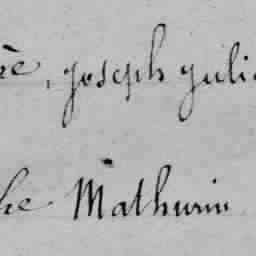 re, joseph juli
he Mathurin